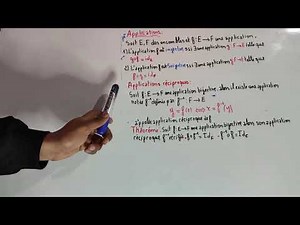 Application:
Soit E, F des ensembles et f: E → F une application.
1) L'application f est injective ssi il existe application g: F → E telle que
g∘f = id_E
2) L'application f est surjective ssi il existe application g: F → E telle que
f∘g = id_F
Application réciproque:
Soit f: E → F une application bijective alors il existe une application
notée f⁻¹ définie par f⁻¹: F → E
y = f(x) ⟺ x = f⁻¹(y)
s'appelle application réciproque de f
Théorème: Soit f: E → F une application bijective alors son application
réciproque f⁻¹ f∘f⁻¹ = Id_F f⁻¹∘f = Id_E